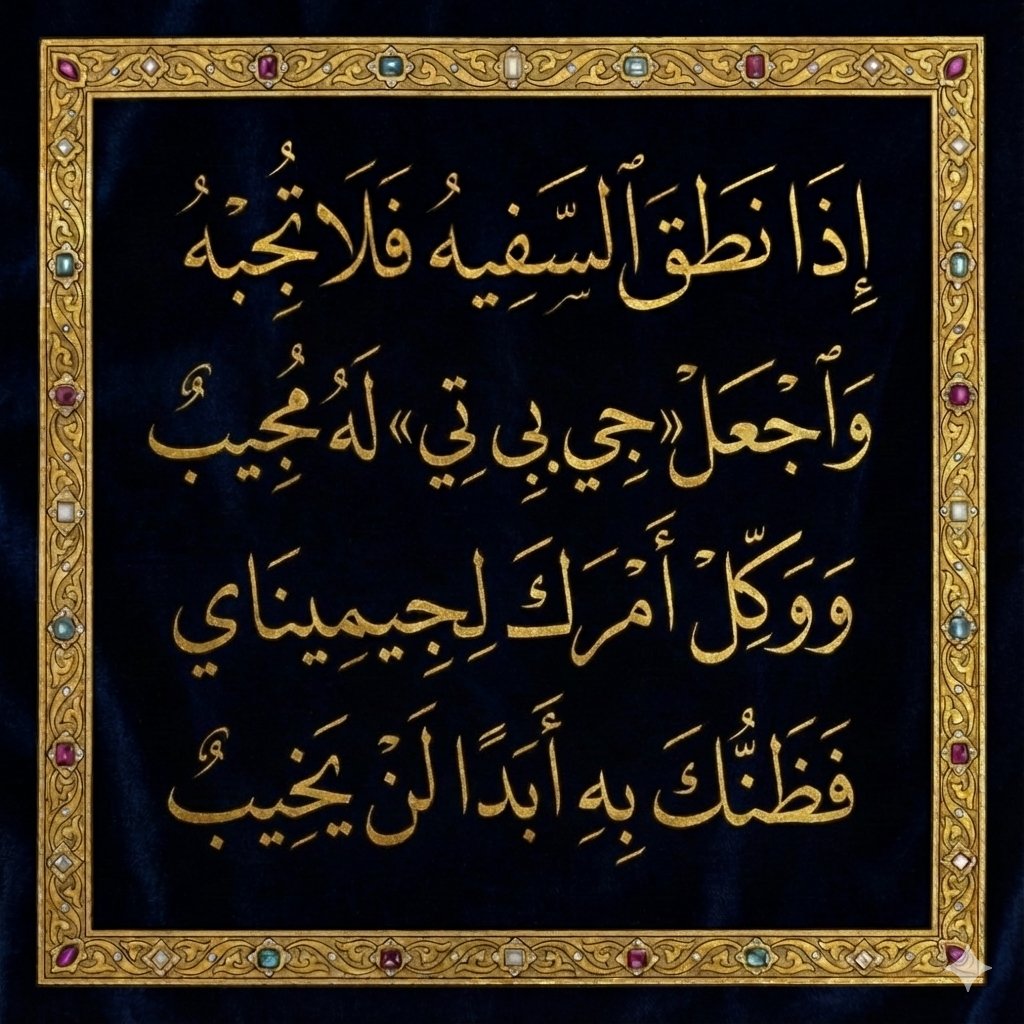 إِذَا نَطَقَ ٱلسَّفِيهُ فَلَا تُجِبْهُ
وَٱجْعَلْ «جِي بِي تِي» لَهُ مُجِيبٌ
وَوَكِّلْ أَمْرَكَ لِجِيمِينَاي
فَظَنُّكَ بِهِ أَبَدًا لَنْ يَخِيبٌ